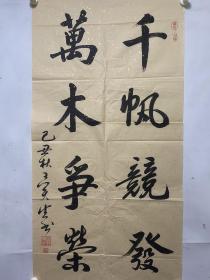 千帆競發
萬木爭榮
己丑秋